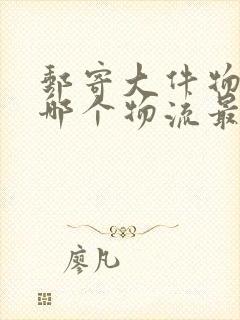 郵寄大件物
哪个物流最
廖凡